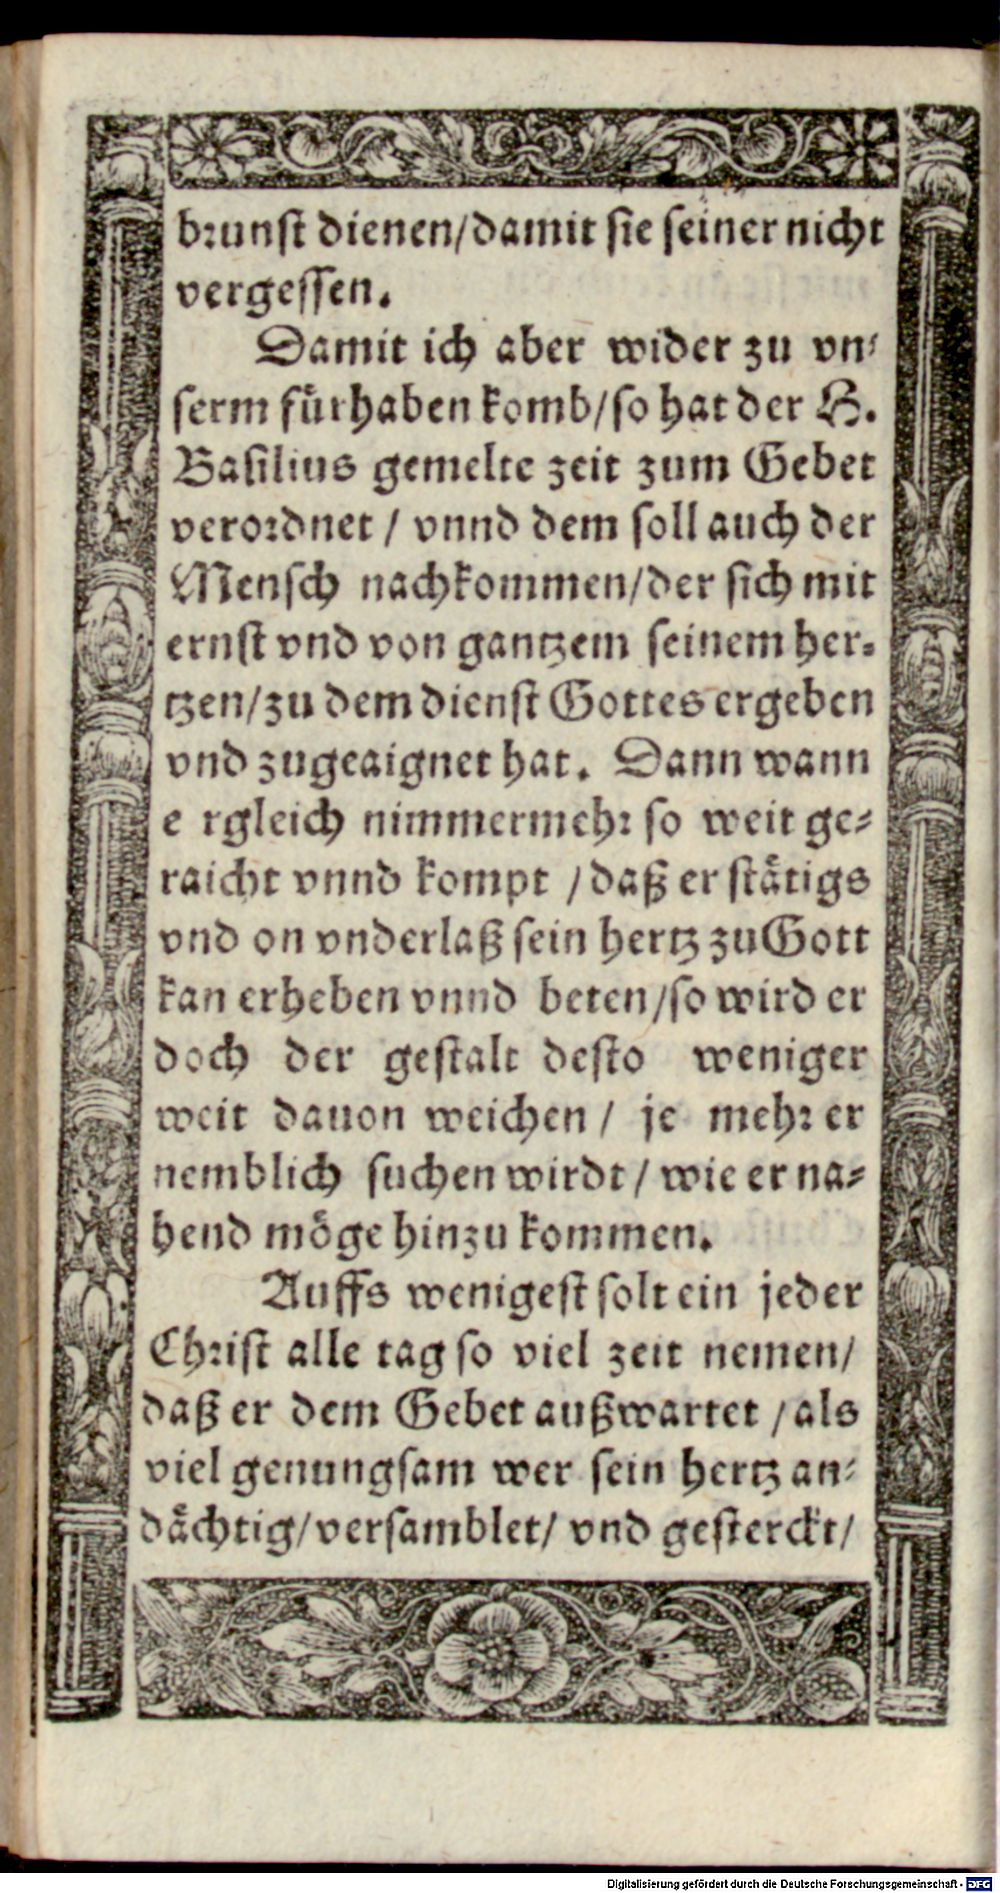 brunst dienen/damit sie seiner nicht
vergessen.
Damit ich aber wider zu vn-
serm fürhaben komb/so hat der H.
Basilius gemelte zeit zum Gebet
verordnet / vnnd dem soll auch der
Mensch nachkommen/der sich mit
ernst vnd von gantzem seinem her-
tzen/zu dem dienst Gottes ergeben
vnd zugeaignet hat. Dann wann
e rgleich nimmermehr so weit ge-
raicht vnnd kompt /daß er stätigs
vnd on vnderlaß sein hertz zu Gott
kan erheben vnnd beten/so wird er
doch der gestalt desto weniger
weit dauon weichen / je mehr er
nemblich suchen wirdt / wie er na-
hend möge hinzu kommen.
Auffs wenigest solt ein jeder
Christ alle tag so viel zeit nemen/
daß er dem Gebet außwartet /als
viel genungsam wer sein hertz an-
dächtig/versamblet/ vnd gesterckt/
Digitalisierung gefördert durch die Deutsche Forschungsgemeinschaft - DFG